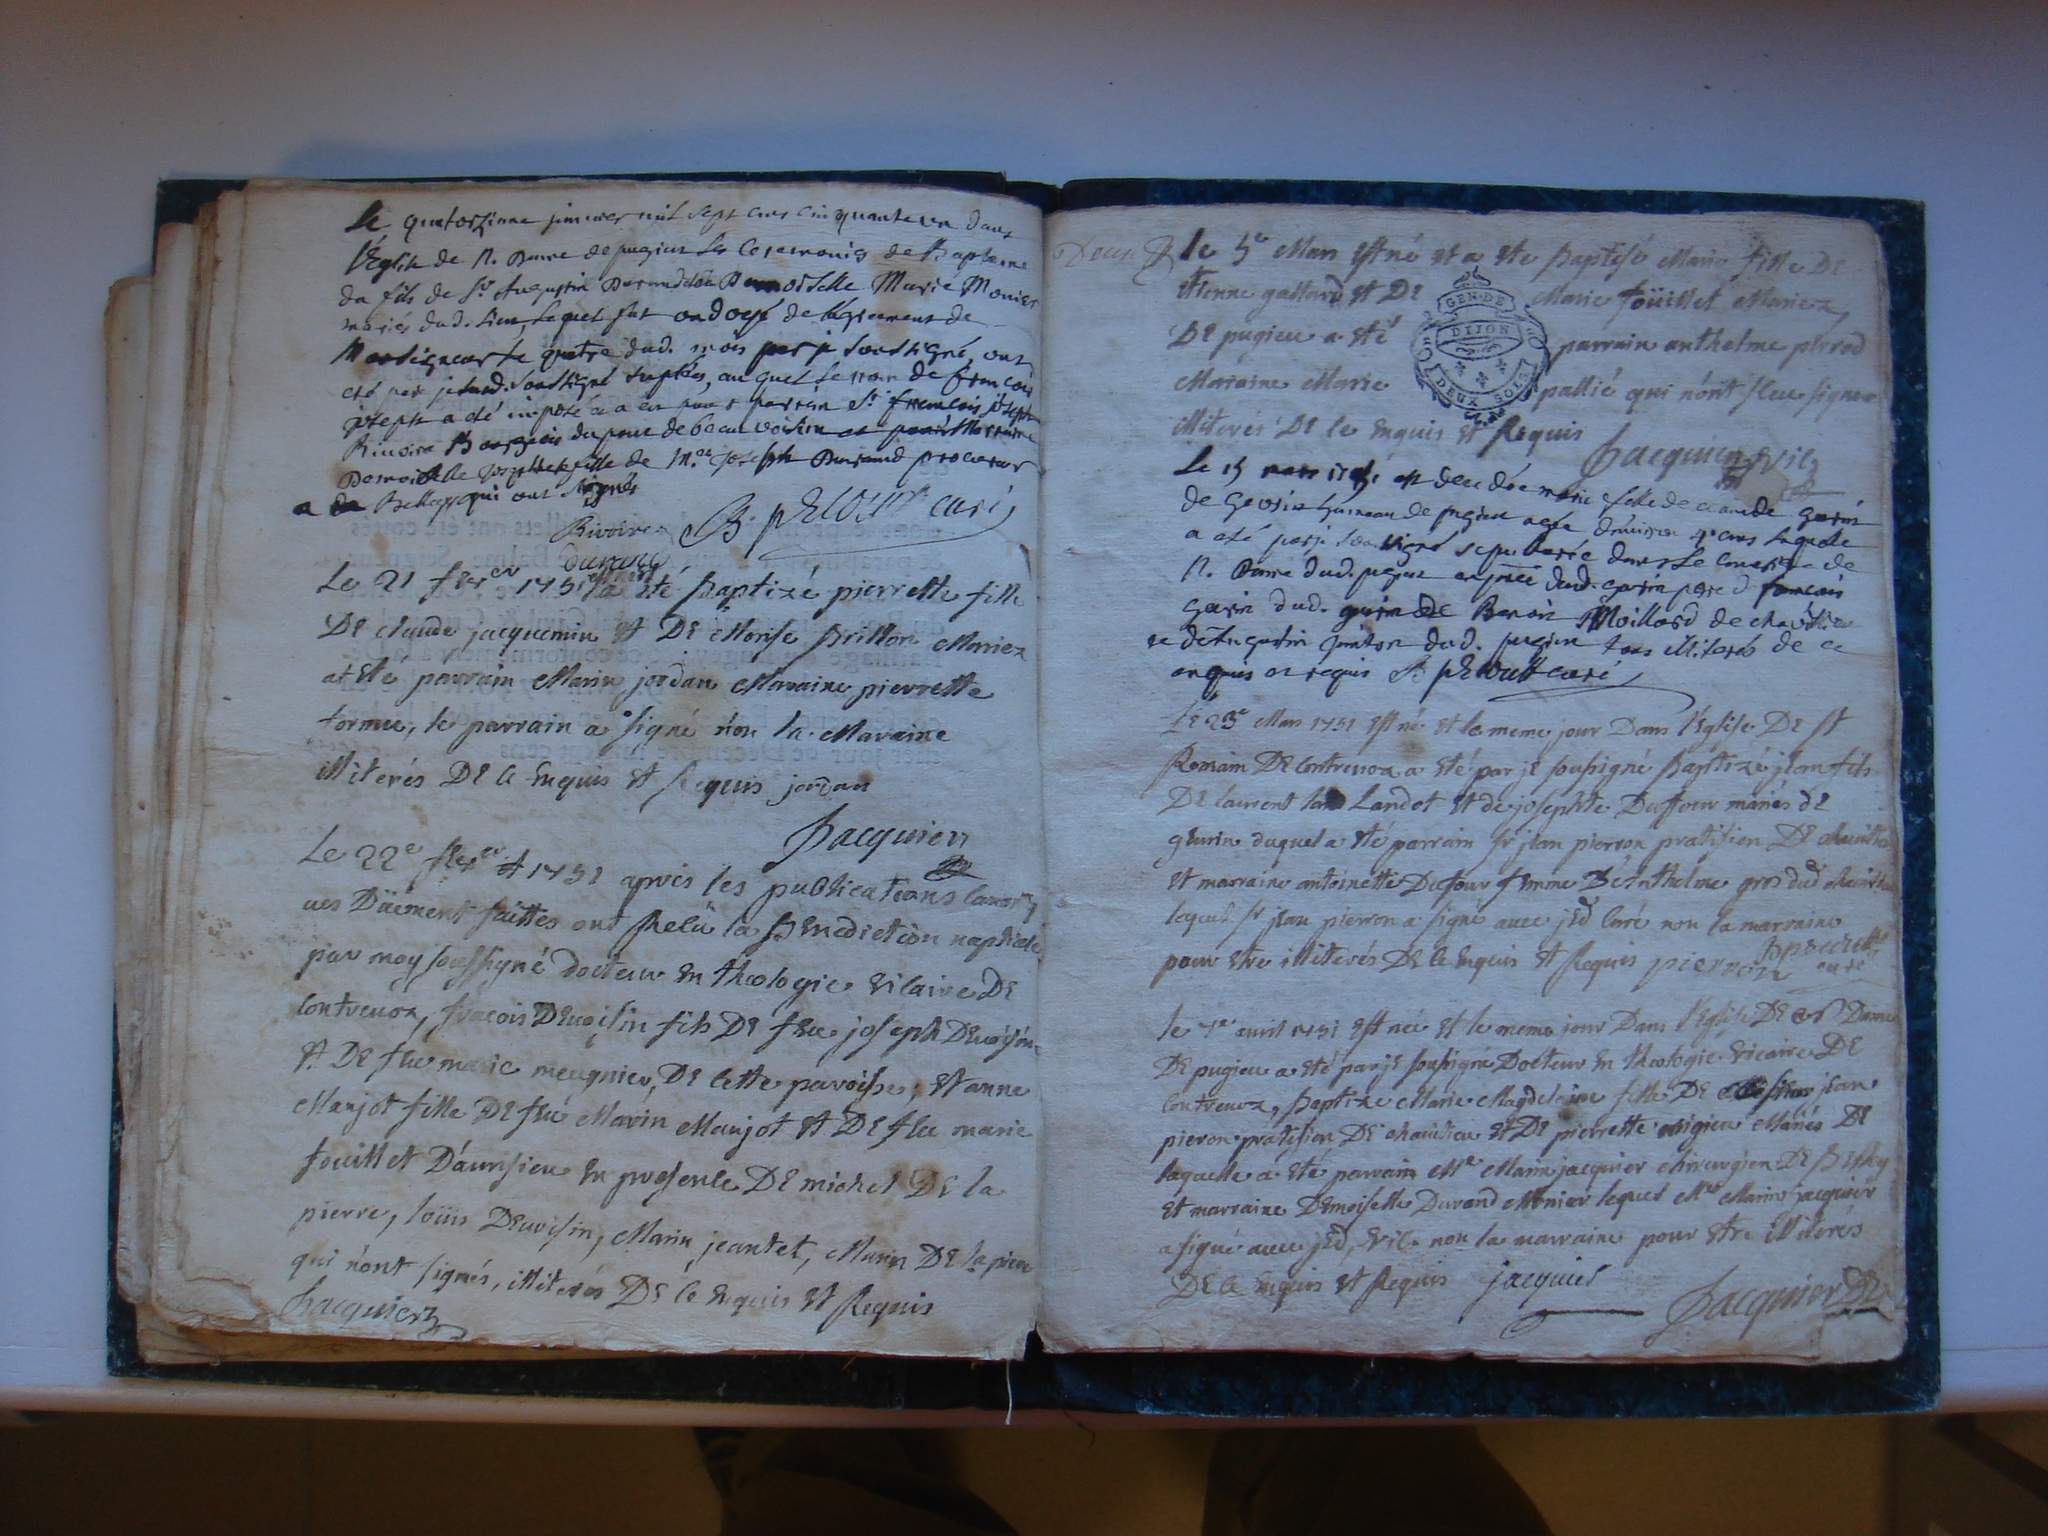 Le quatorzieme janvier mil sept cens cinquante un dans
l'Église de N. Dame de pugieu les Ceremonies de Bapteme
du fils de Sr Augustin Durand et de Demoiselle Marie Monier
mariés dud. lieu, lequel fut ondoyé de l'agrement de
Monseigneur le quatre dud. mois par je soussigné, ont
eté par je sousigné suplées, auquel le nom de françois
joseph a eté imposé a eu pour parrain Sr françois joseph
Rivoire Bourgeois du pont de beauvoisin et Marraine
Demoiselle fille de Me Joseph Durand procureur
a Belley qui ont signés
Rivoire curé
durand
Le 21 fevrier 1751 a été baptizé pierrette fille
De claude jacquemin et De Brillon Mariez
at été parrain Marin jordan Maraine pierrette
le parrain a signé non la Maraine
illiterés De ce Enquis et Requis jordan
Jacquier
Le 22e 1751 après les publications canoni
ques Düement faittes ont Reçü la Benediction nuptiale
par moy soussigné docteur en theologie vicaire De
Contrevoz, fracois Devoisin fils De feu joseph Devoisin
et De feue marie meugnier, De cette paroisse, et anne
Manjot fille De feu Marin Manjot et De feu marie
foüillet D'aunsieu en presence De michel De la
pierre, loüis Devoisin, Marin jeantet, Marin De la pierre
qui n'ont signés, illiterés De ce Enquis et Requis
Jacquier
Deux
le 5e Mars est né et a été baptisé Marie fille De
etienne gallard et De Marie foüillet Mariez
De pugieu a été parrain anthelme pirod
Maraine Marie pallié qui n'ont sceu signer
illiterés De ce enquis et Requis
Jacquier vic
GEN. DE
DIJON
DEUX SOLS
Le 15 mars 1751 est decedée marie fille de claude gavin
de pugieu agée d'environ 4 ans laquelle
a eté par je soussigné sepulturée dans le cimetiere de
N. Dame dud. pugieu en présce dud. gavin pere françois
gavin dud. Benoit Moillard de
dud. pugieu tous illiterés de ce
enquis et requis curé
Le 23e Mars 1751 est né et le meme jour Dans l'Eglise De St
Romain De Contrevoz a été par je sousigné Baptizé jean fils
De laurent Landot et de josephte Dufour mariés de
duquel a été parrain Sr jean pierron pratisien De
et marraine antoinette Dufour femme D'Anthelme gros dud
lequel Sr jean pierron a signé avec jed Curé non la marraine
pour etre illiterés De ce enquis et Requis pierron
curé
le avril 1751 est née et le meme jour Dans l'Eglise De N Dame
De pugieu a été par je sousigné Docteur en theologie vicaire De
Contrevoz, baptizé Marie Magdeleine fille De jean
pieron pratisien De et De pierrette Mariés De
laquelle a été parrain Me Marin jacquier chirurgien De Belley
et marraine Demoiselle Durand Monier lequel Me Marin jacquier
a signé avec jed, vic. non la marraine pour etre illiterés
De ce Enquis et Requis jacquier
Jacquier